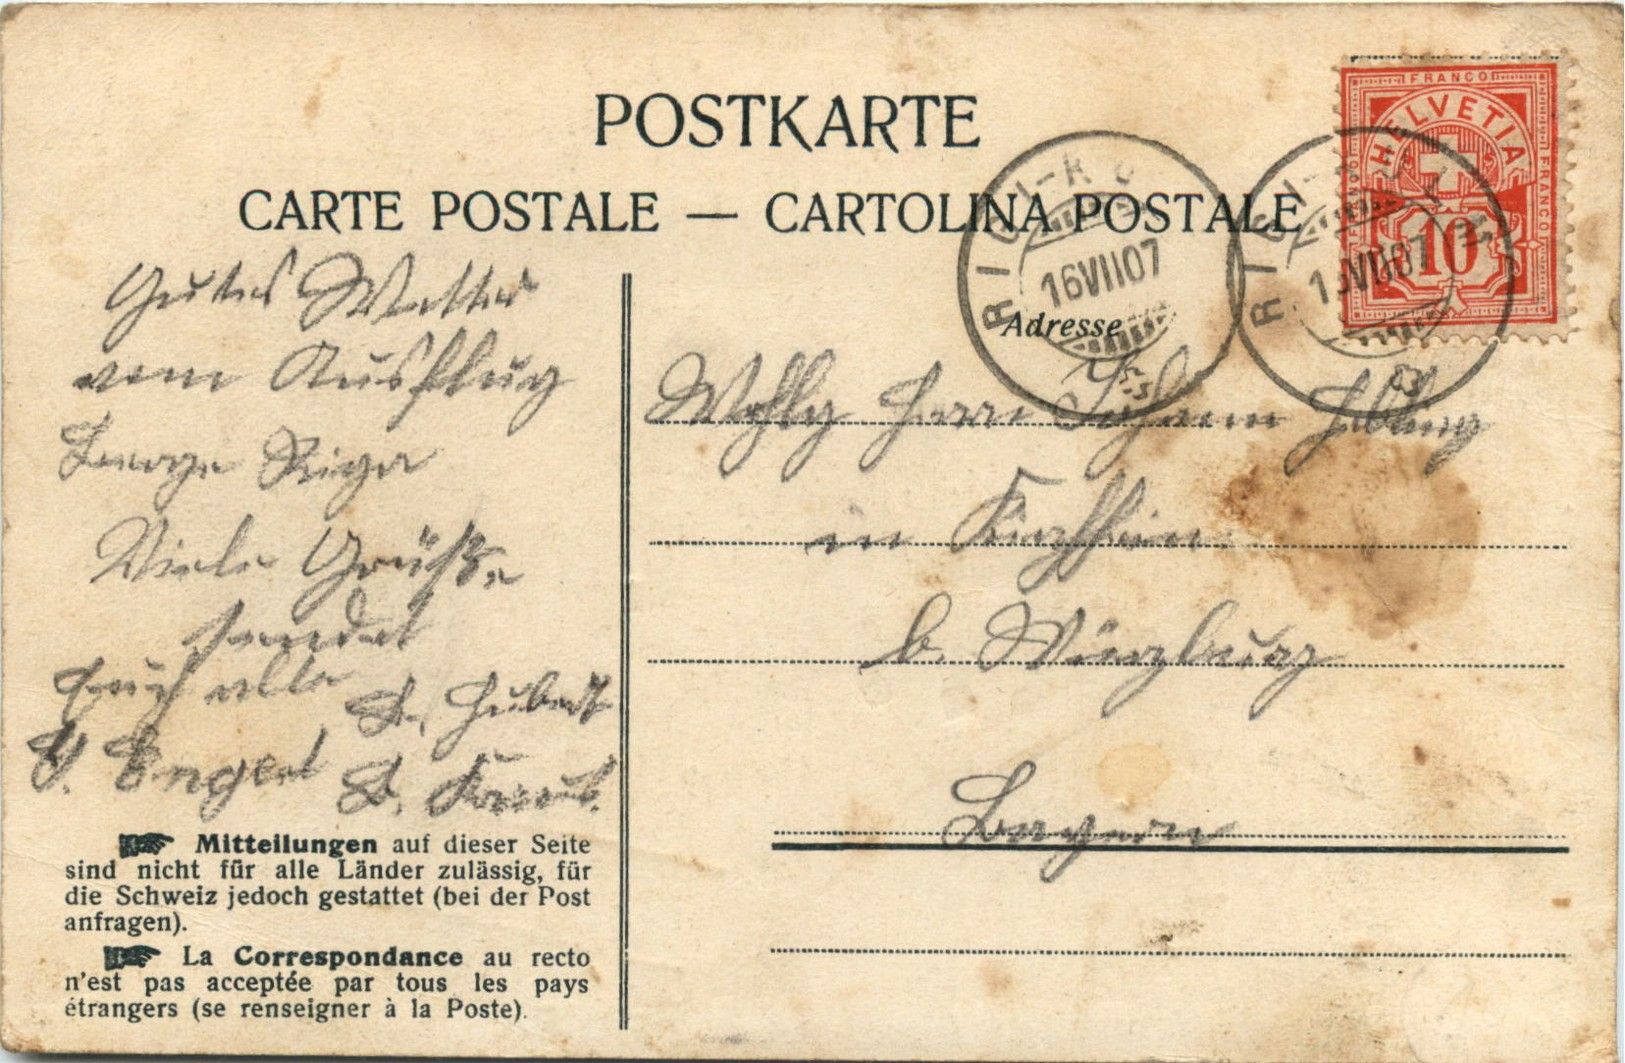 POSTKARTE
CARTE POSTALE — CARTOLINA POSTALE
FRANCO
HELVETIA
FRANCO
10
RIGI-K
16 VII 07
RIGI-KU
VII 07
Adresse
Gutes Wetter
vom Ausflug
Viele Grüße
sendet
Euch alle
L. Hubert
Engert
in Kirchheim
b. Würzburg
Bayern
Mitteilungen auf dieser Seite
sind nicht für alle Länder zulässig, für
die Schweiz jedoch gestattet (bei der Post
anfragen).
La Correspondance au recto
n'est pas acceptée par tous les pays
étrangers (se renseigner à la Poste).